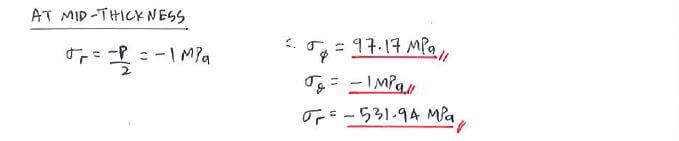 AT MID-THICKNESS
σr = -P/2 = -1 MPa
∴ σφ = 97.17 MPa //
σθ = -1 MPa //
σr = -531.94 MPa //